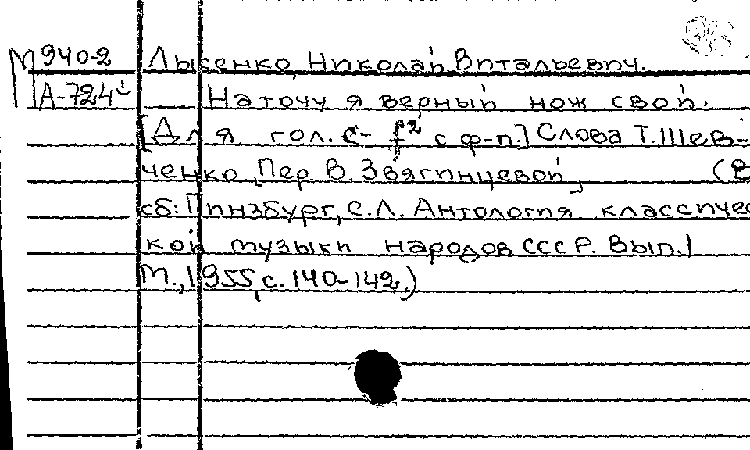 М 940-2 Лысенко, Николай Витальевич.
А-724 Наточу я верный нож свой.
[Для гол. с- f² с ф-п.] Слова Т. Шев-
ченко, Пер В. Звягинцевой, (в
сб: Гинзбург, С.Л. Антология классичес
кой музыки народов СССР. Вып. 1
М., 1955, с. 140-142.)